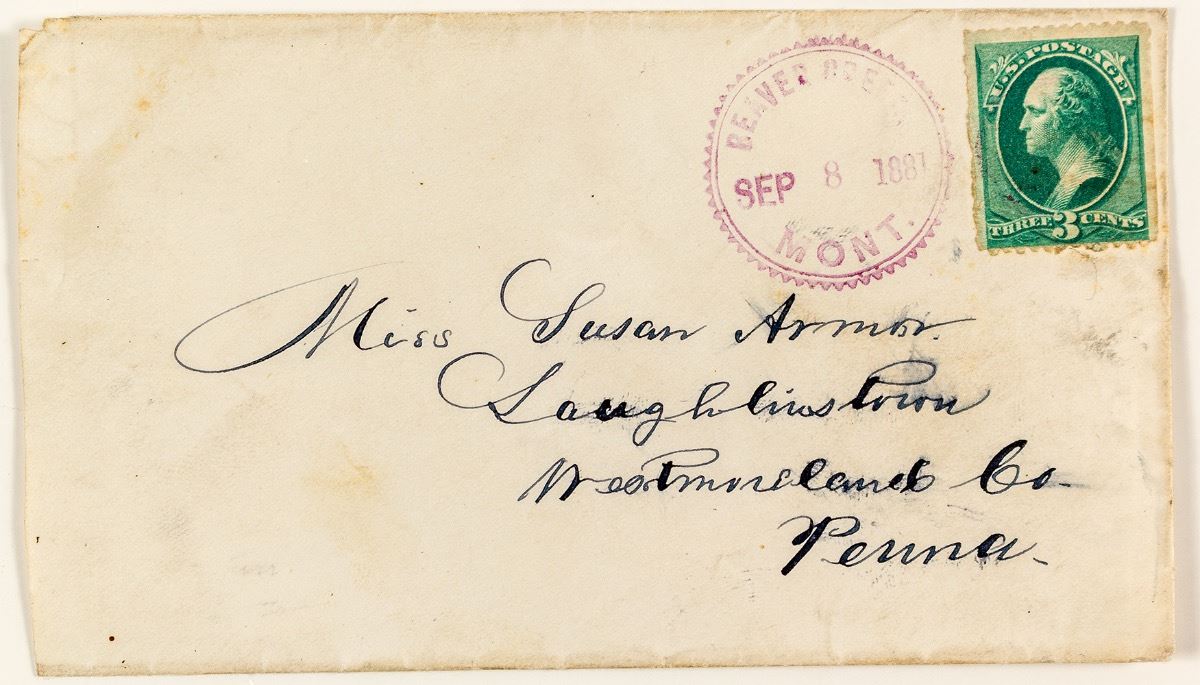 BEAVER CREEK
SEP 8 1881
MONT.
U.S. POSTAGE
THREE 3 CENTS
Miss Susan Armor.
Laughlinstown
Westmoreland Co.
Penna.